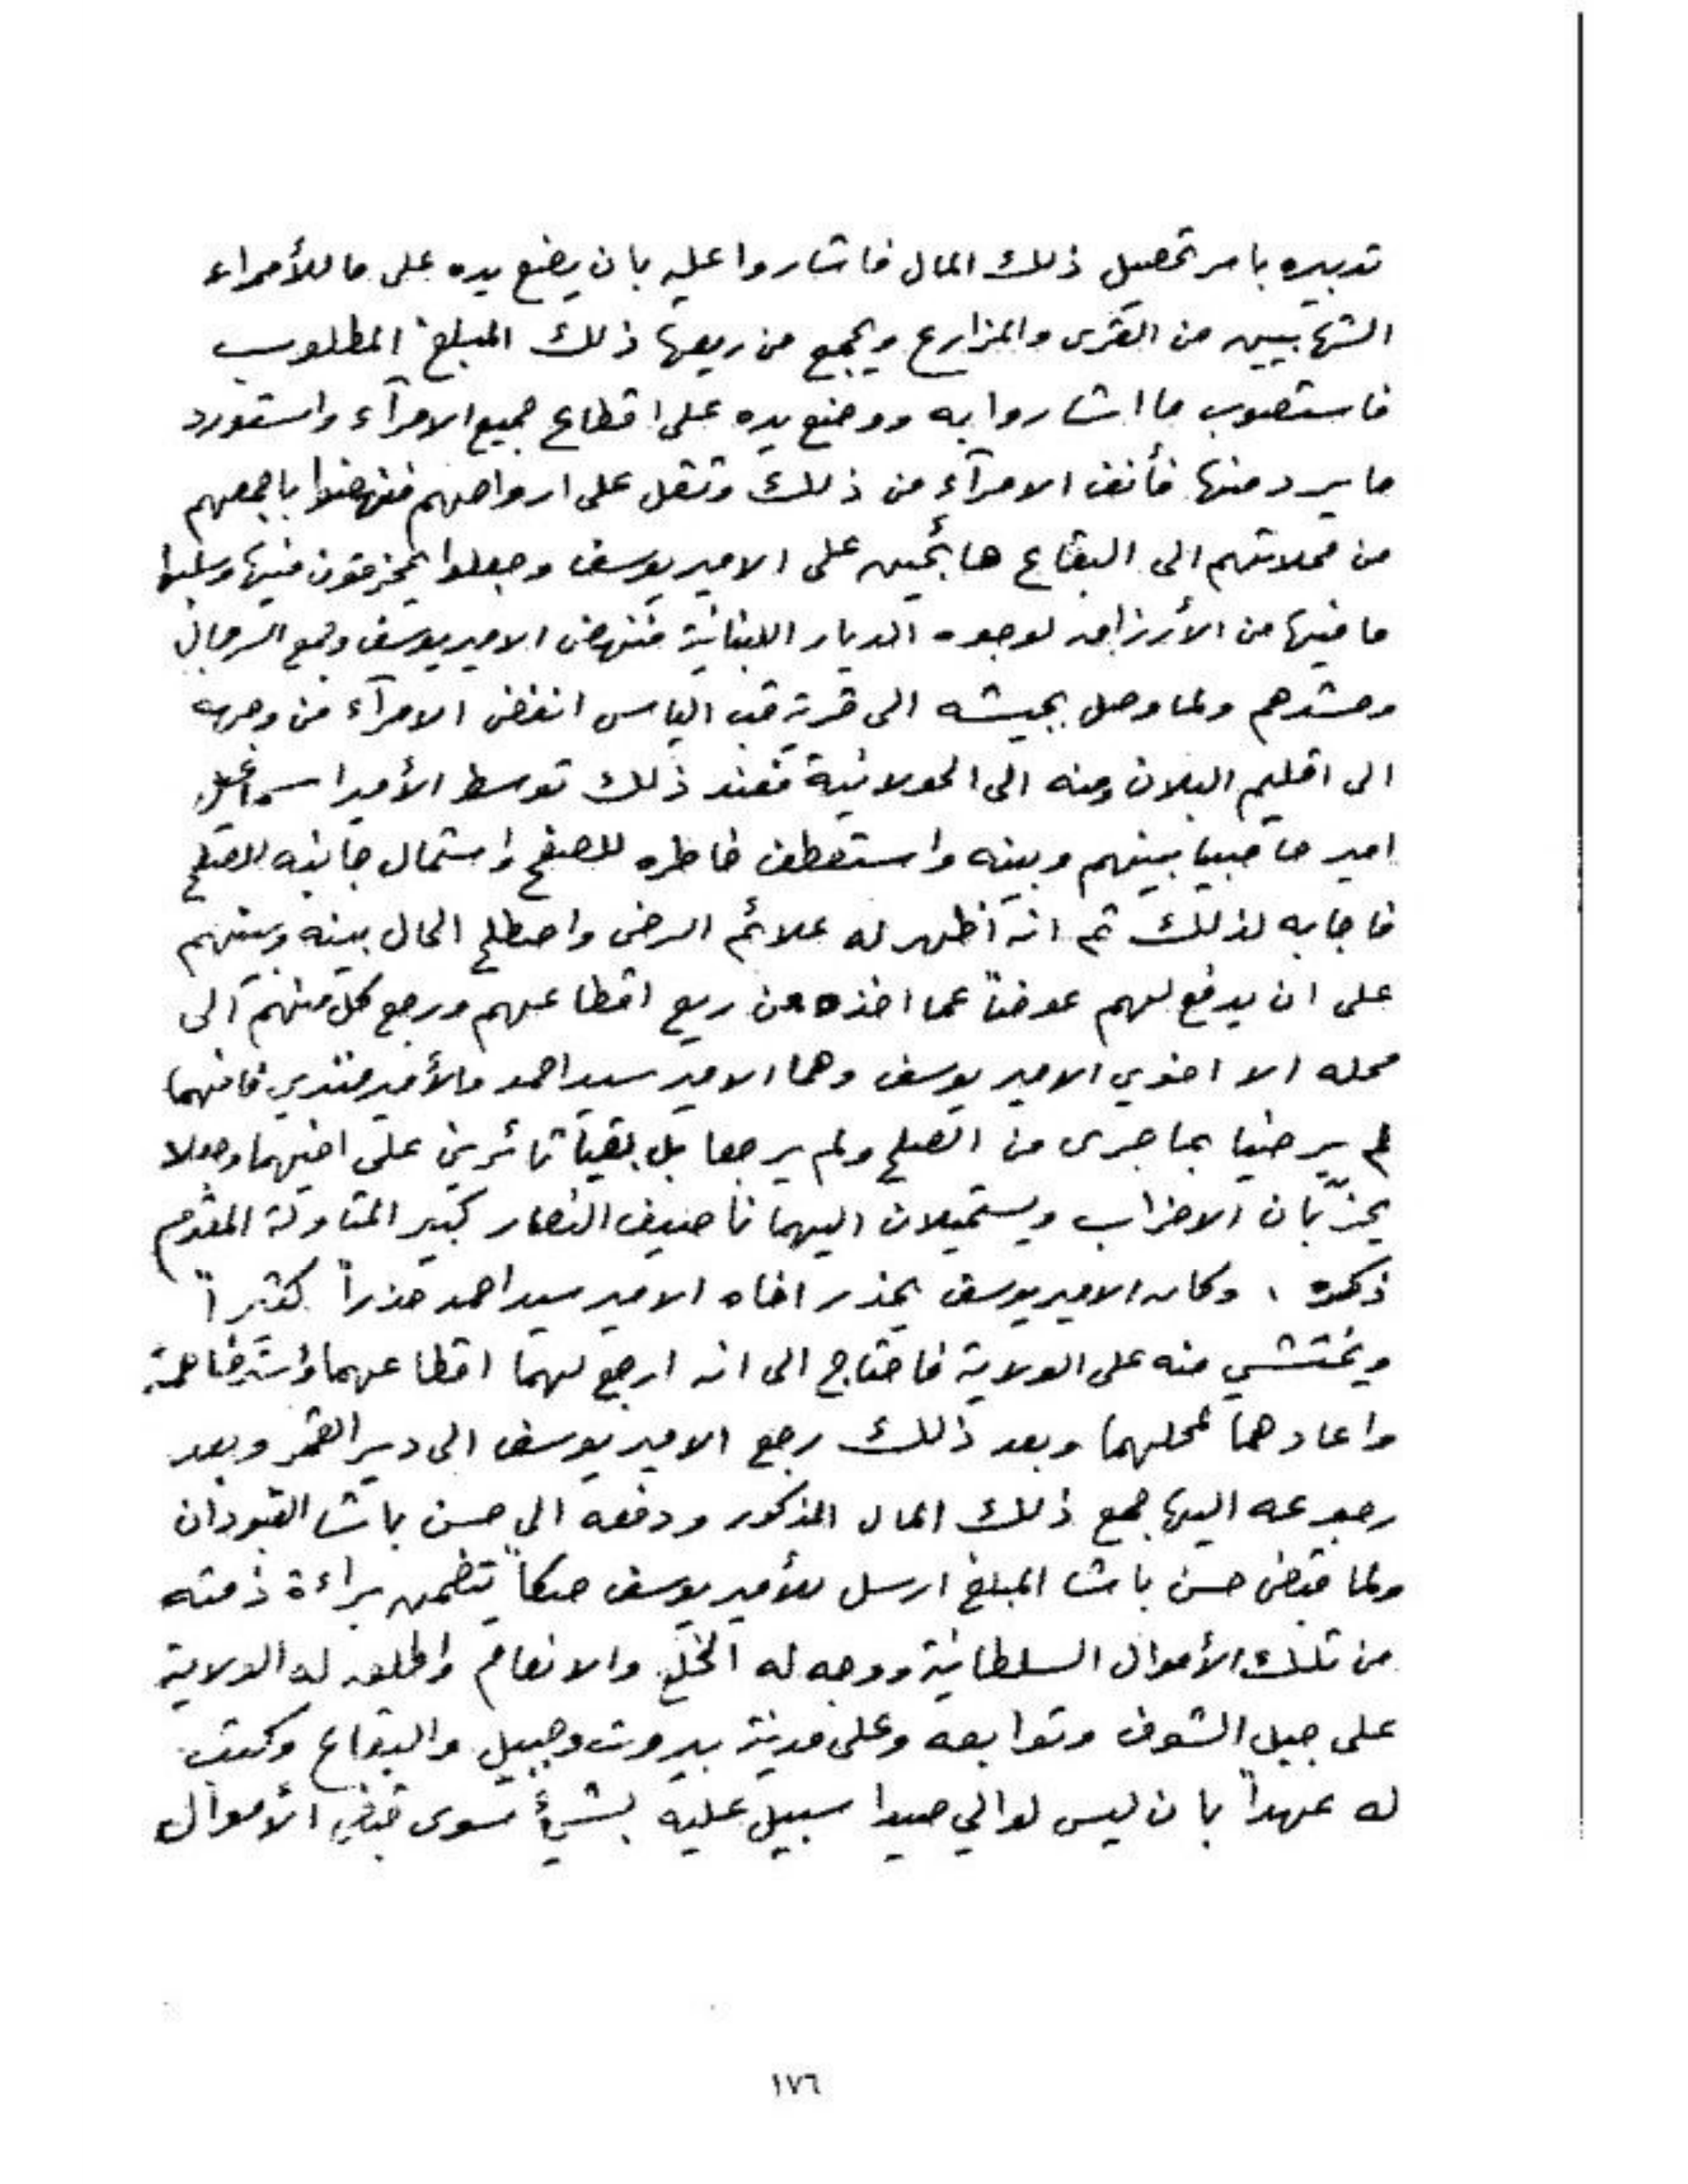 تدبيره بامر تحصيل ذلك المال فاشاروا عليه بان يضع يده على ما للأمراء
الشهابيين من القرى والمزارع ويجمع من ريعها ذلك المبلغ المطلوب
فاستصوب ما اشاروا به ووضع يده على اقطاع جميع الامرآء واستورد
ما يرد منها فأنف الامرآء من ذلك وثقل على ارواحهم فنهضوا باجمعهم
من محلاتهم الى البقاع هائجين على الامير يوسف وجعلوا يخرقون فيها وسلبوا
ما فيها من الأرزاق لوجوه الديار اللبنانية فنهض الامير يوسف وجمع الرجال
وحشدهم ولما وصل بجيشه الى قرية قب الياس انفض الامرآء من وجهه
الى اقليم البلان ومنه الى الحولانية فعند ذلك توسط الأمير اسماعيل
امير حاصبيا بينهم وبينه واستعطف خاطره للصفح واستمال جانبه للصلح
فاجابه لذلك ثم انه اظهر له علائم الرضى واصطلح الحال بينه وبينهم
على ان يدفع لهم عوضاً عما اخذه من ريع اقطاعهم ورجع كل منهم الى
محله الا اخوي الامير يوسف وهما الامير سيد احمد والأمير فندي فانهما
لم يرضيا بما جرى من الصلح ولم يرجعا بل بقيا ثائرين على اخيهما وجعلا
يحزّبان الاحزاب ويستميلان اليهما ناصيف النصار كبير المتاولة المقدم
ذكره ، وكان الامير يوسف يحذر اخاه الامير سيد احمد حذراً كثيراً
ويختشي منه على الولاية فاحتاج الى انه ارجع لهما اقطاعهما واسترضاهما
واعادهما لمحلهما وبعد ذلك رجع الامير يوسف الى دير القمر وبعد
رجوعه اليها جمع ذلك المال المذكور ودفعه الى حسن باشا القبودان
ولما قبض حسن باشا المبلغ ارسل للأمير يوسف صكاً يتضمن براءة ذمته
من تلك الأموال السلطانية ووجه له الخلع والانعام واطلق له الولاية
على جبل الشوف وتوابعه وعلى مدينة بيروت وجبيل والبقاع وكتب
له عهداً بان ليس لوالي صيدا سبيل عليه بشيءٍ سوى قبض الأموال
١٧٦